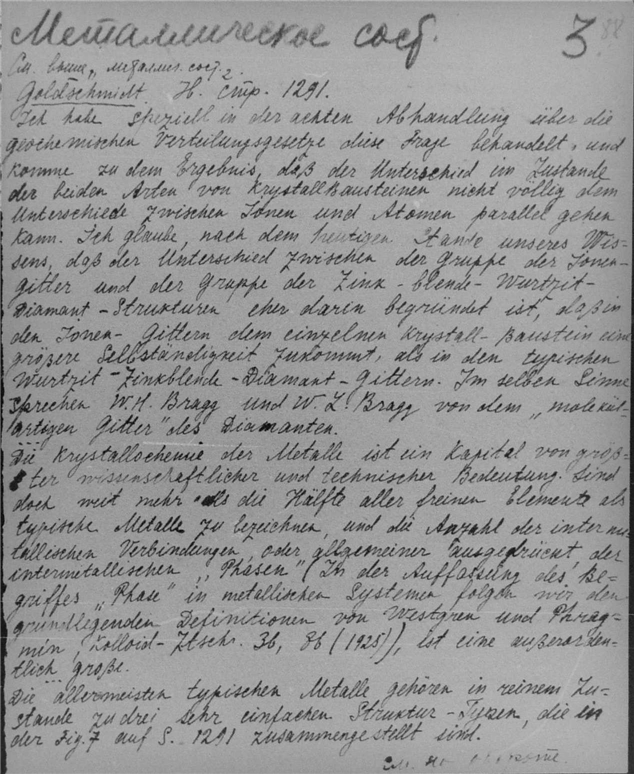 Металлическое сост. 3 88
См. выше „металлич. сост.2
Goldschmidt H. стр. 1291.
Ich habe speziell in der achten Abhandlung über die
geochemischen Verteilungsgesetze diese Frage behandelt, und
komme zu dem Ergebnis, daß der Unterschied im Zustande
der beiden Arten von Krystallbausteinen nicht völlig dem
Unterschiede zwischen Ionen und Atomen parallel gehen
kann. Ich glaube, nach dem heutigen Stande unseres Wis-
sens, daß der Unterschied zwischen der Gruppe der Ionen-
gitter und der Gruppe der Zink-blende-Wurtzit-
Diamant-Strukturen eher darin begründet ist, daß in
den Ionen-Gittern dem einzelnen Krystall-Baustein eine
größere Selbständigkeit zukommt, als in den typischen
Wurtzit-Zinkblende-Diamant-Gittern. Im selben Sinne
sprechen W.H. Bragg und W.L. Bragg von dem „molekül-
artigen Gitter" des Diamanten.
Die Krystallochemie der Metalle ist ein Kapital von größ-
ter wissenschaftlicher und technischer Bedeutung. Sind
doch weit mehr als die Hälfte aller freinen Elemente als
typische Metalle zu bezeichnen, und die Anzahl der interme-
tallischen Verbindungen, oder allgemeiner ausgedrückt, der
intermetallischen „Phasen" (In der Auffassung des Be-
griffes „Phase" in metallischen Systemen folgen wir den
grundliegenden Definitionen von Westgren und Phrag-
mén, Kolloid-Ztschr. 36, 86 (1925)), ist eine außerorden-
tlich große.
Die allermeisten typischen Metalle gehören in reinem Zu-
stande zu drei sehr einfachen Struktur-Typen, die in
der Fig. 7 auf S. 1291 zusammengestellt sind.
см. на обороте.